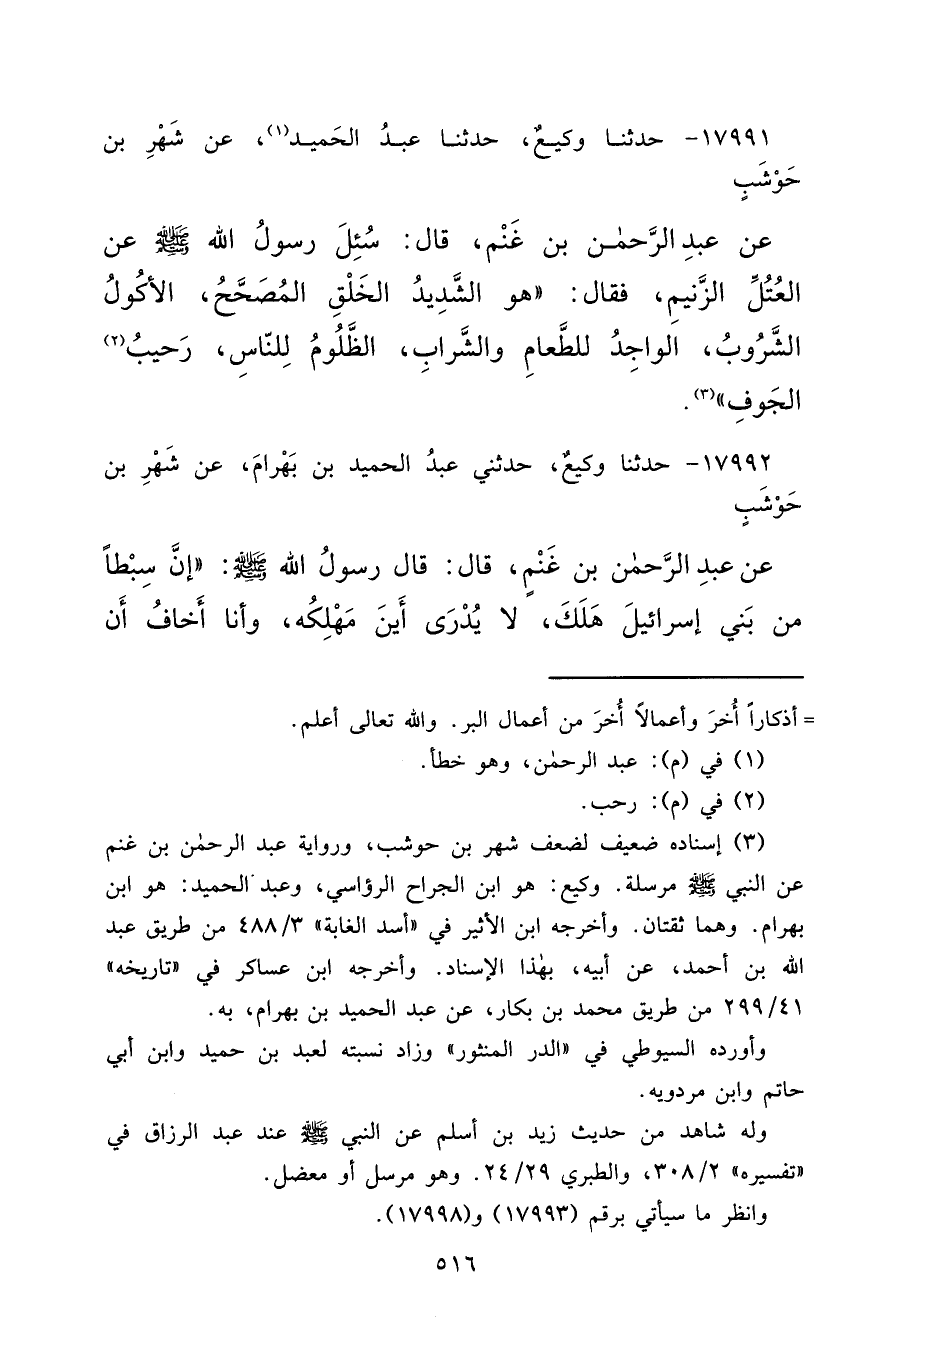 ١٧٩٩١- حدثنـا وكيـعٌ، حدثنـا عبـدُ الحَميـد(١)، عن شَهْرِ بن
حَوْشَبٍ
عن عبدِ الرَّحمٰـن بن غَنْم، قال: سُئِلَ رسولُ الله ﷺ عن
العُتُلِّ الزَّنيمِ، فقال: «هو الشَّدِيدُ الخَلْقِ المُصَحَّحُ، الأكُولُ
الشَّرُوبُ، الواجِدُ للطَّعامِ والشَّرابِ، الظَّلُومُ لِلنّاسِ، رَحيبُ(٢)
الجَوفِ»(٣).
١٧٩٩٢- حدثنا وكيعٌ، حدثني عبدُ الحميد بن بَهْرامَ، عن شَهْرِ بن
حَوْشَبٍ
عن عبدِ الرَّحمٰن بن غَنْمٍ، قال: قال رسولُ الله ﷺ: «إنَّ سِبْطاً
من بَني إسرائيلَ هَلَكَ، لا يُدْرَى أَينَ مَهْلِكُه، وأنا أَخافُ أَن
= أذكاراً أُخرَ وأعمالاً أُخرَ من أعمال البر. والله تعالى أعلم.
(١) في (م): عبد الرحمٰن، وهو خطأ.
(٢) في (م): رحب.
(٣) إسناده ضعيف لضعف شهر بن حوشب، ورواية عبد الرحمٰن بن غنم
عن النبي ﷺ مرسلة. وكيع: هو ابن الجراح الرؤاسي، وعبد الحميد: هو ابن
بهرام. وهما ثقتان. وأخرجه ابن الأثير في «أسد الغابة» ٤٨٨/٣ من طريق عبد
الله بن أحمد، عن أبيه، بهٰذا الإسناد. وأخرجه ابن عساكر في «تاريخه»
٢٩٩/٤١ من طريق محمد بن بكار، عن عبد الحميد بن بهرام، به.
وأورده السيوطي في «الدر المنثور» وزاد نسبته لعبد بن حميد وابن أبي
حاتم وابن مردويه.
وله شاهد من حديث زيد بن أسلم عن النبي ﷺ عند عبد الرزاق في
«تفسيره» ٣٠٨/٢، والطبري ٢٤/٢٩. وهو مرسل أو معضل.
وانظر ما سيأتي برقم (١٧٩٩٣) و(١٧٩٩٨).
٥١٦